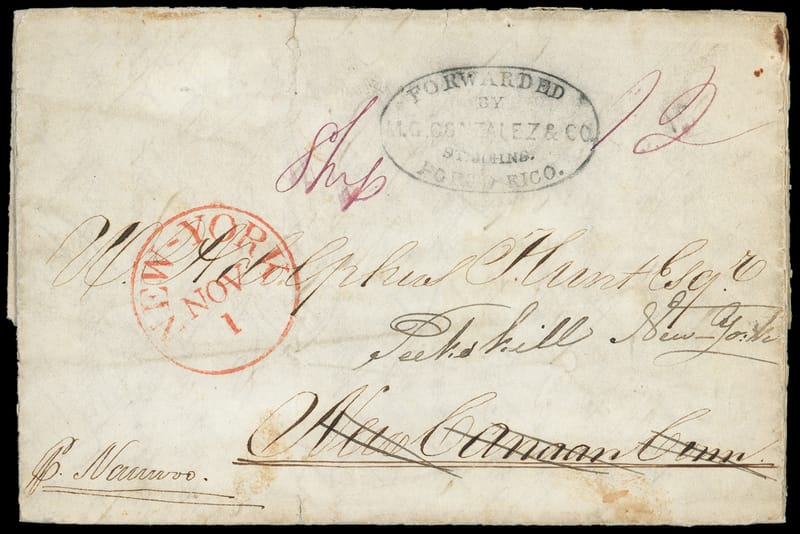 FORWARDED
BY
M.G. GONZALEZ & CO.
ST. JOHNS.
PORTO RICO.
Ship 12
NEW-YORK
NOV
1
W. Adolphus Hunt Esqr
Peekskill New-York
New Canaan Conn.
P. Nauvoo.